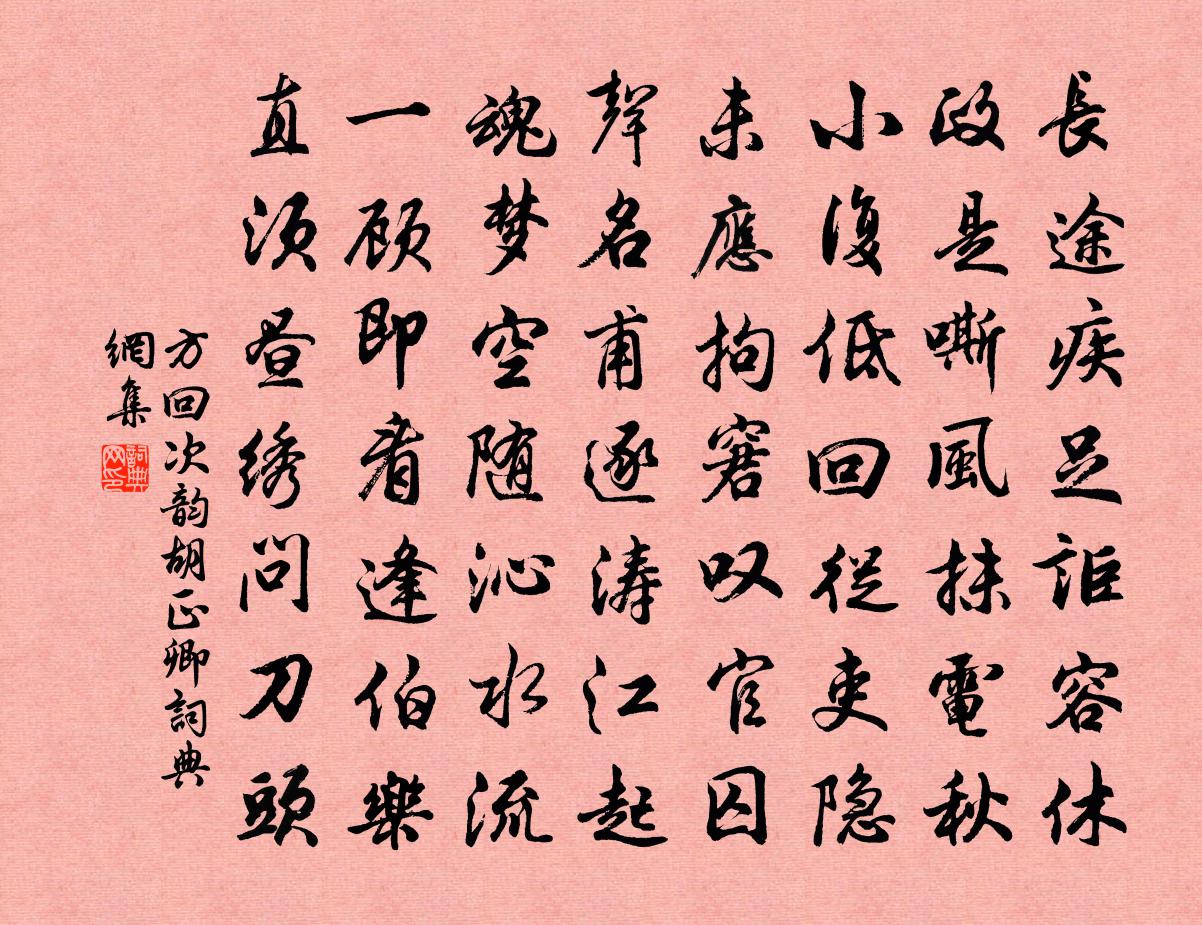 長途疾足詎容休
政是嘶風抹電秋
小復低回從吏隐
未應拘窘叹官囚
聲名甫逐涛江起
魂梦空随沁水流
一顾即看逢伯樂
直须昼绣问刀頭
方回次韵胡正卿詞典
網集